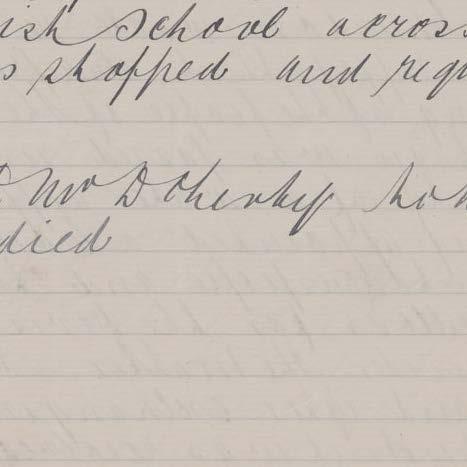 ish School across
s stopped and requ
Mr Doherty
died